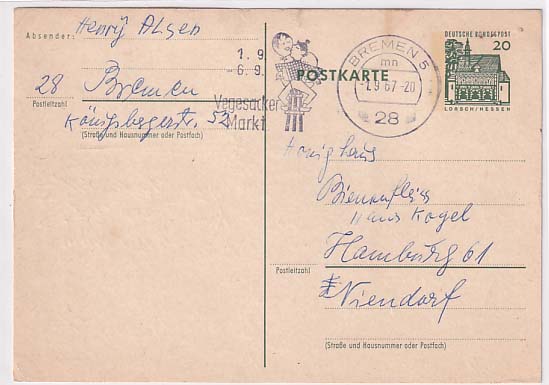 Absender: Henry Algen
28 Bremen
Postleitzahl
Königsbergerstr. 52
(Straße und Hausnummer oder Postfach)
1. 9.
-6. 9.
Vegesacker
Markt
POSTKARTE
BREMEN 5
mn
-1.9.67-20
28
DEUTSCHE BUNDESPOST
20
LORSCH/HESSEN
Honighaus
Bienenfleiss
Hans Kogel
Hamburg 61
Postleitzahl
Niendorf
(Straße und Hausnummer oder Postfach)